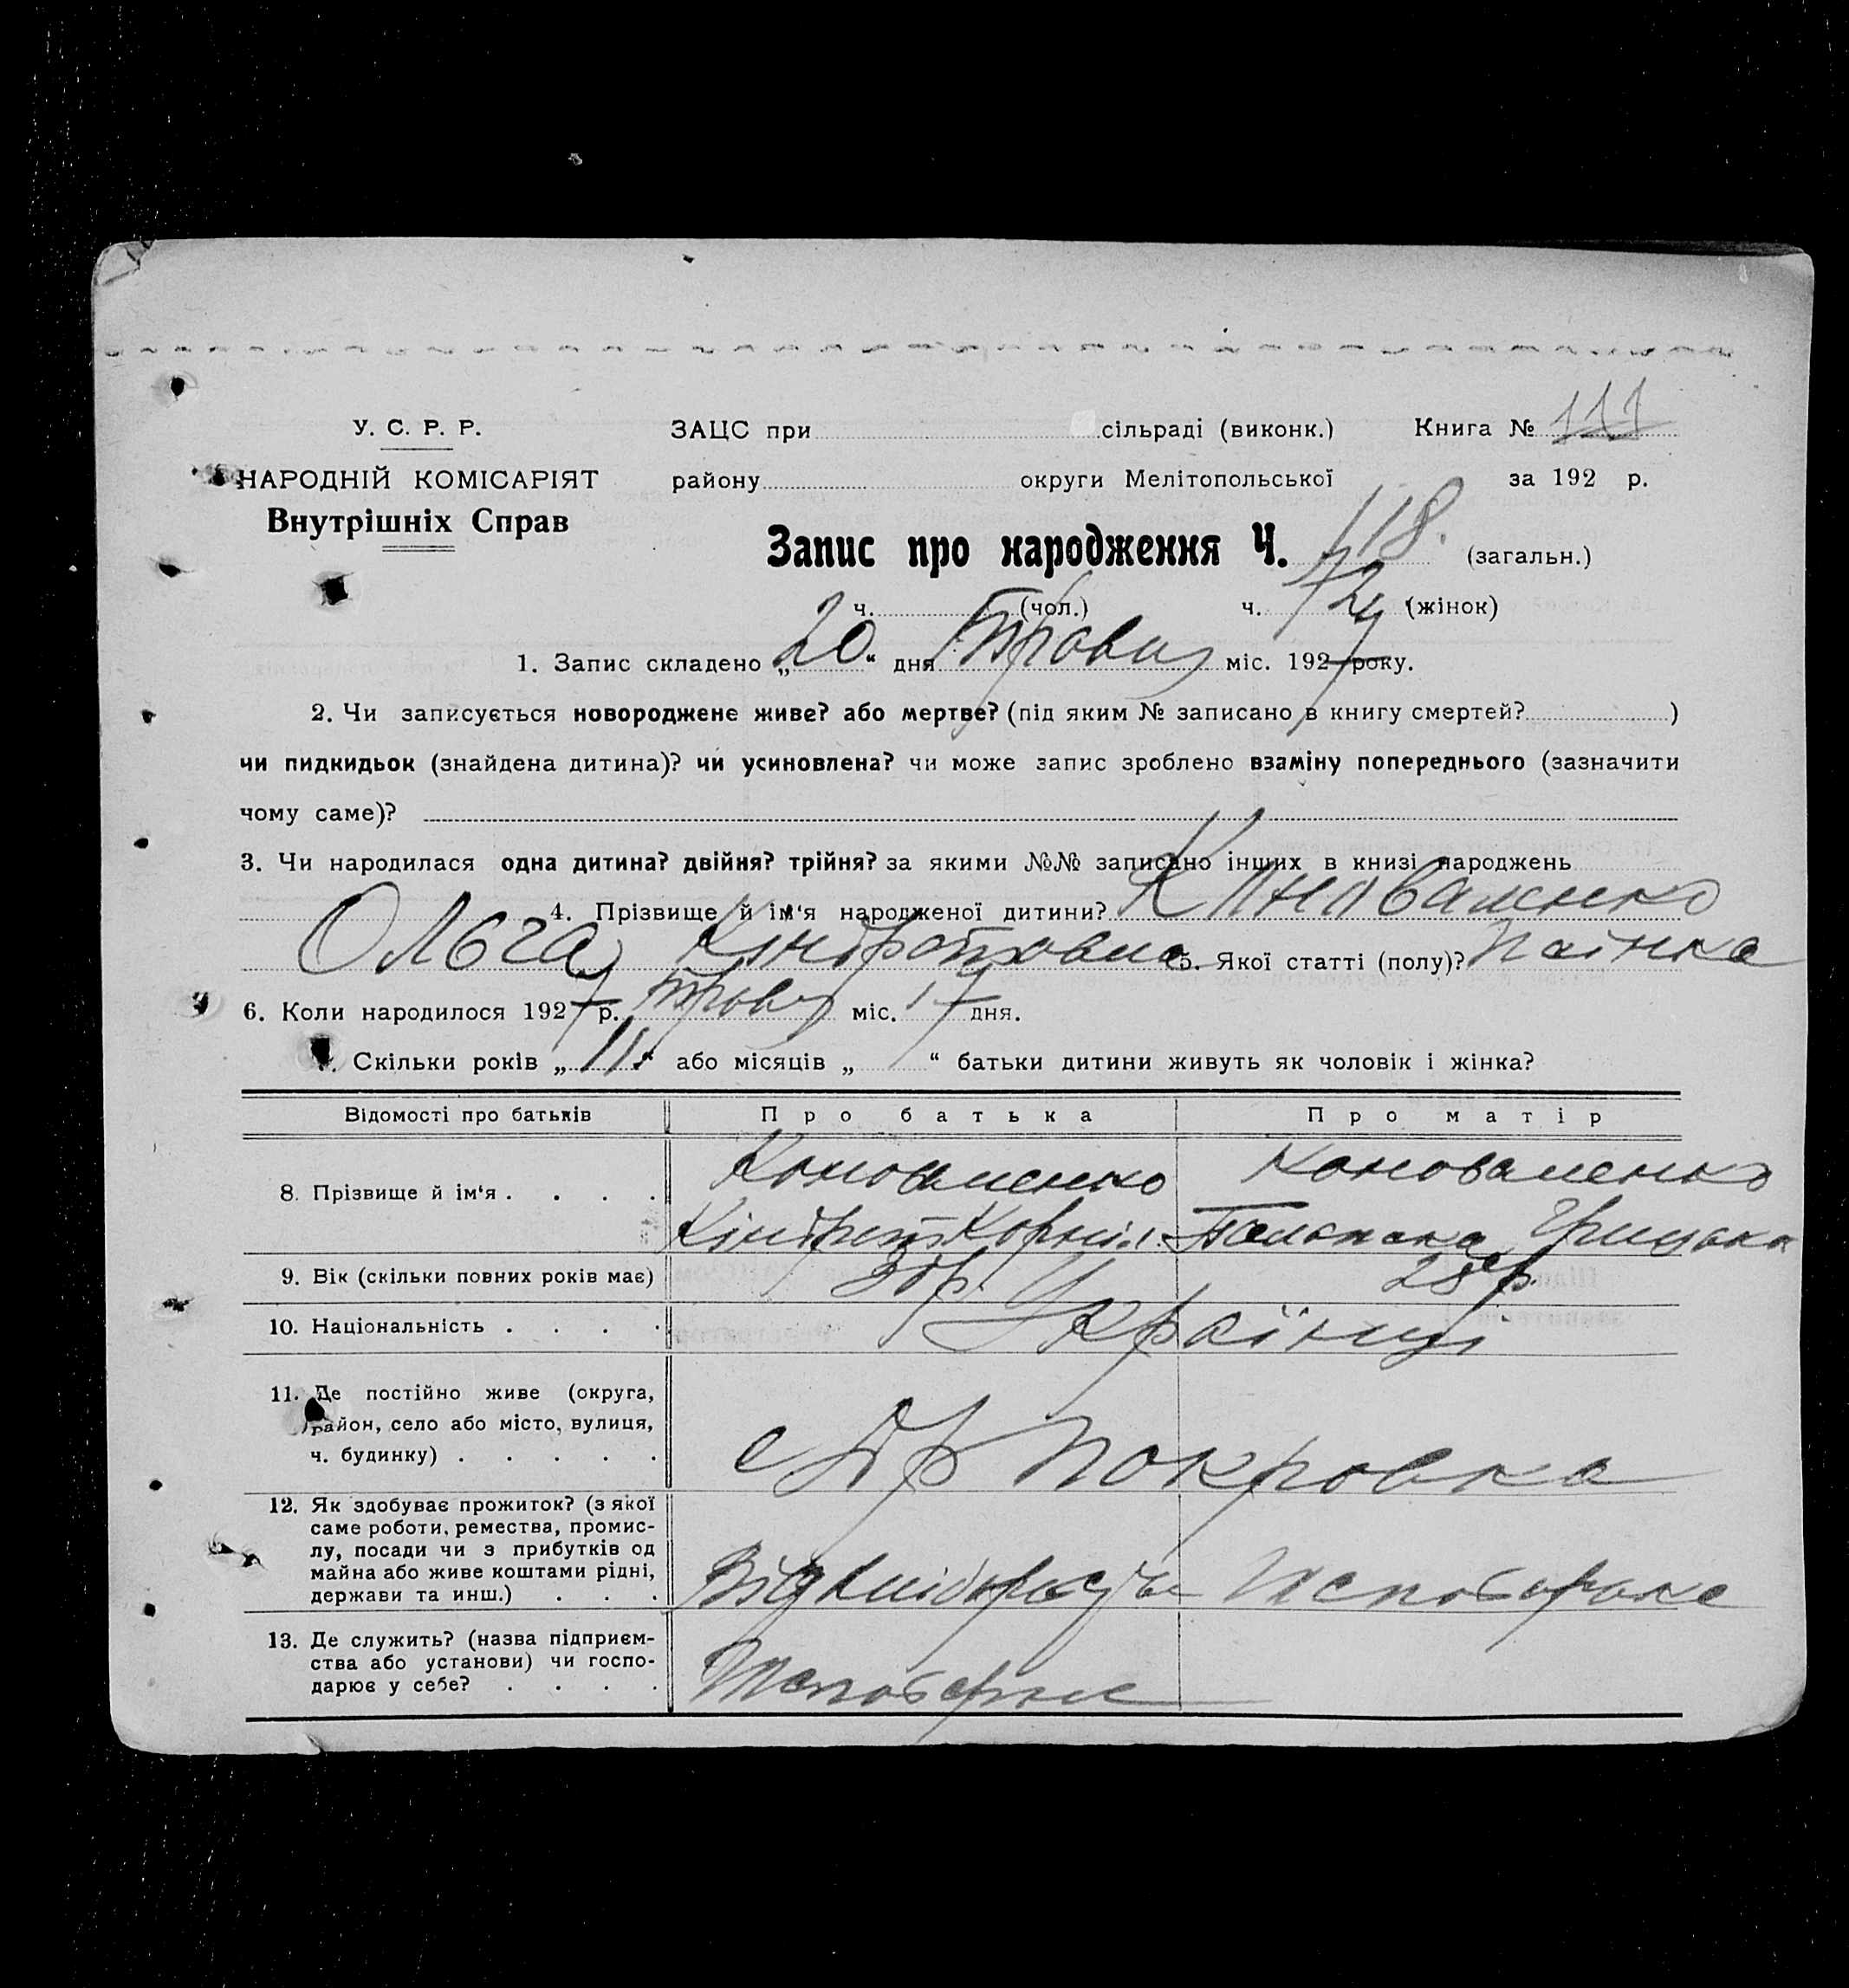 У. С. Р. Р.
НАРОДНІЙ КОМІСАРІЯТ
Внутрішніх Справ
ЗАЦС при сільраді (виконк.) Книга № 111
району округи Мелітопольської за 192 р.
Запис про народження Ч. 118. (загальн.)
ч. (чол.) ч. 72 (жінок)
1. Запис складено „20“ дня Травня міс. 1927 року.
2. Чи записується новороджене живе? або мертве? (під яким № записано в книгу смертей? )
чи пидкидьок (знайдена дитина)? чи усиновлена? чи може запис зроблено взаміну попереднього (зазначити
чому саме)?
3. Чи народилася одна дитина? двійня? трійня? за якими №№ записано інших в книзі народжень
4. Прізвище й ім'я народженої дитини? Коноваленко
Ольга Кіндратовна 5. Якої статті (полу)?
6. Коли народилося 1927 р. Травня міс. 17 дня.
Скільки років „11 або місяців „ “ батьки дитини живуть як чоловік і жінка?
Відомості про батьків Про батька Про матір
8. Прізвище й ім'я . . . . Коноваленко Коноваленко
Кіндрат Корній.
9. Вік (скільки повних років має) 28 р.
10. Національність . . . . Українці
11. Де постійно живе (округа,
район, село або місто, вулиця,
ч. будинку) . . . . . с Покровка
12. Як здобуває прожиток? (з якої
саме роботи, ремества, промис-
лу, посади чи з прибутків од
майна або живе коштами рідні,
держави та инш.) . . .
13. Де служить? (назва підприєм-
ства або установи) чи госпо-
дарює у себе? . . . .